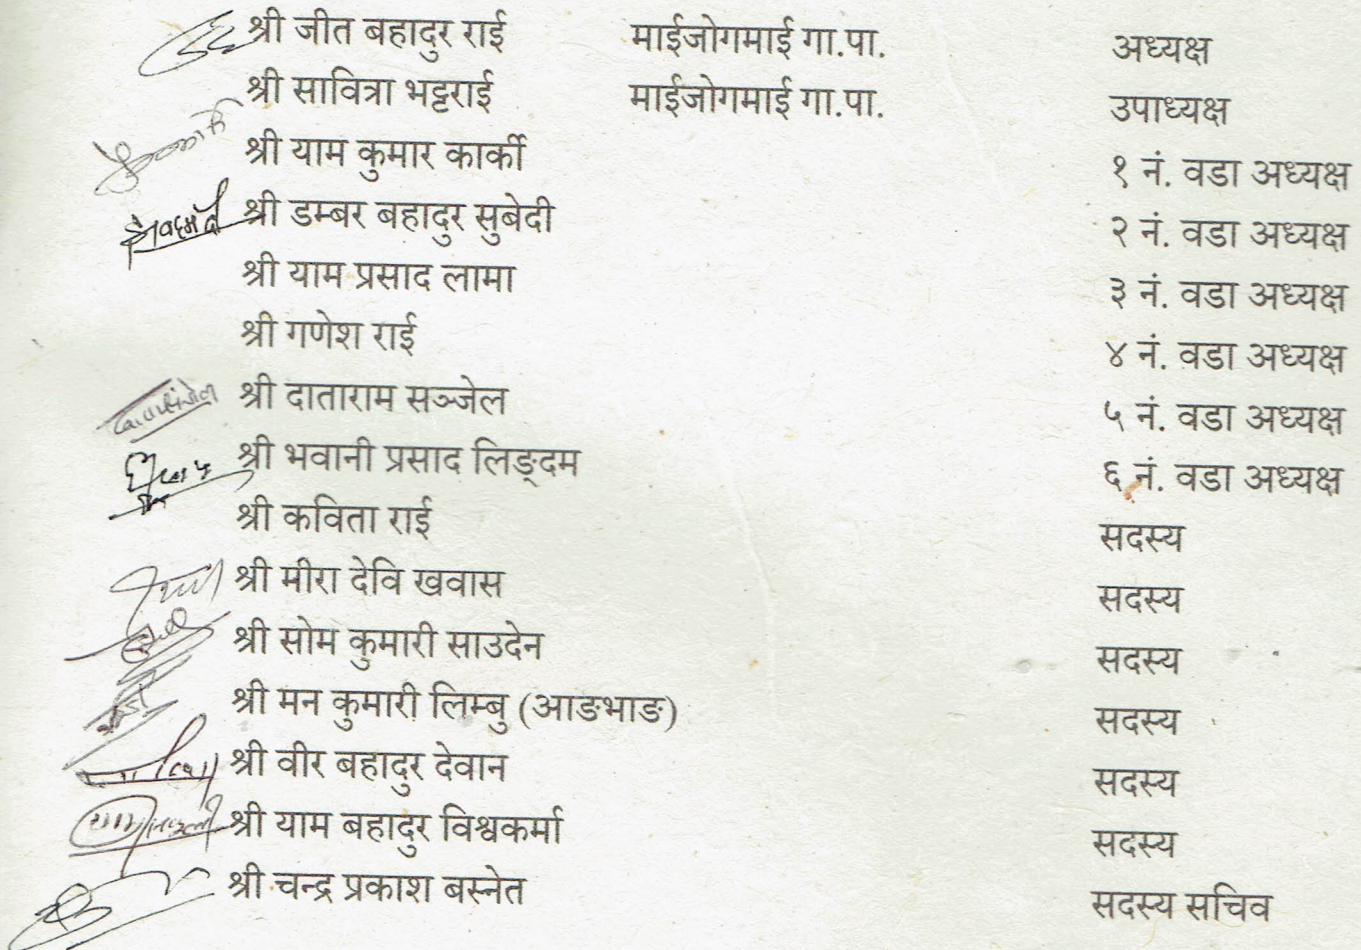 श्री जीत बहादुर राई माईजोगमाई गा.पा. अध्यक्ष
श्री सावित्रा भट्टराई माईजोगमाई गा.पा. उपाध्यक्ष
श्री याम कुमार कार्की १ नं. वडा अध्यक्ष
श्री डम्बर बहादुर सुबेदी २ नं. वडा अध्यक्ष
श्री याम प्रसाद लामा ३ नं. वडा अध्यक्ष
श्री गणेश राई ४ नं. वडा अध्यक्ष
श्री दाताराम सञ्जेल ५ नं. वडा अध्यक्ष
श्री भवानी प्रसाद लिङ्दम ६ नं. वडा अध्यक्ष
श्री कविता राई सदस्य
श्री मीरा देवि खवास सदस्य
श्री सोम कुमारी साउदेन सदस्य
श्री मन कुमारी लिम्बु (आङभाङ) सदस्य
श्री वीर बहादुर देवान सदस्य
श्री याम बहादुर विश्वकर्मा सदस्य
श्री चन्द्र प्रकाश बस्नेत सदस्य सचिव